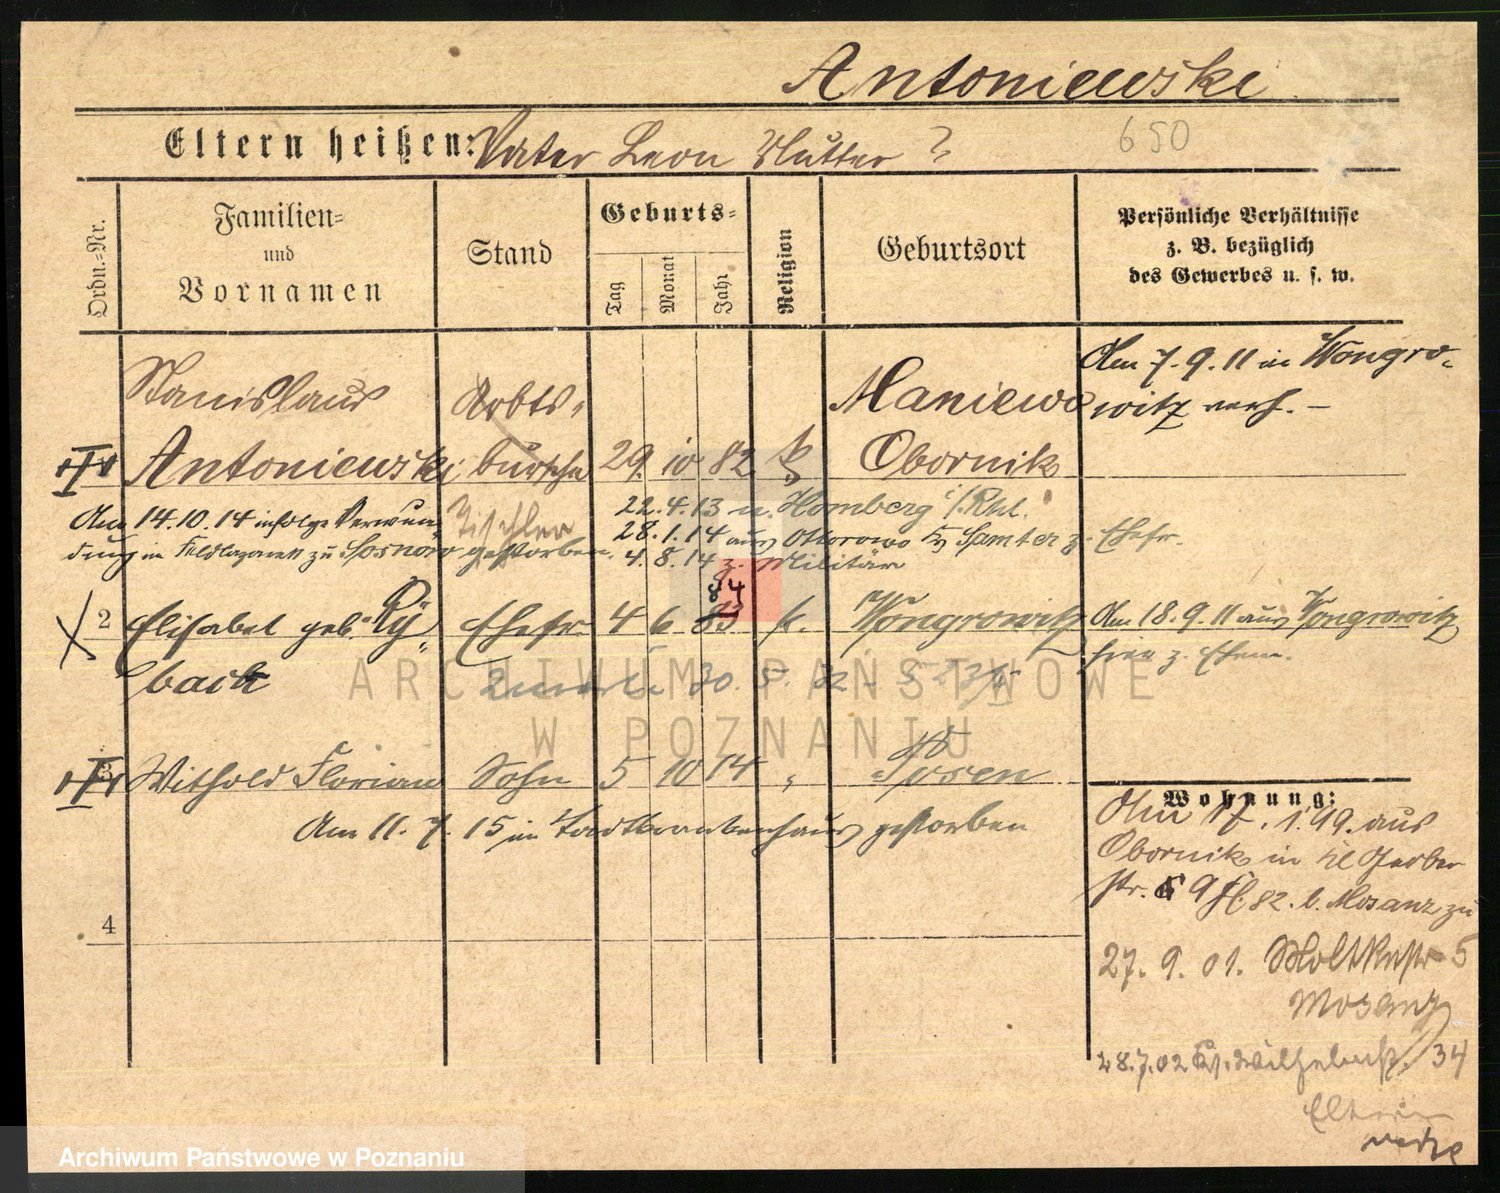 Antoniewski
Eltern heißen: Vater Leon Mutter ?
650
Ordn.=Nr.
Familien=
und
Vornamen
Stand
Geburts=
Tag
Monat
Jahr
Religion
Geburtsort
Persönliche Verhältnisse
z. B. bezüglich
des Gewerbes u. s. w.
Stanislaus Arbts- Maniewo
Am 7.9.11 in Wongro-
witz verh. –
Antoniewski bursche 29. 10 82 k Obornik
Tischler
Am 14.10.14 infolge Verwun
dung im Feldlazarett zu Sosnowo gestorben.
22.4.13 n. Homberg i/Rhl.
28.1.14 aus Otorowo Kr Samter z. Ehefr.
4.8.14 z. Militär
84
2 Elisabet geb. Ry Ehefr. 4 6 83 k. Wongrowitz
back
Am 18.9.11 aus Wongrowitz
hier z. Ehem.
30. 5.
3 Withold Florian Sohn 5 10 14 " Posen
Am 11. 7. 15 im Stadtkrankenhaus gestorben
4
Wohnung:
Am 17. 1. 99. aus
Obornik in Kl Gerber
str. 9 b. Mosanz zu
27. 9. 01. Moltkestr 5
Mosanz
28.7.02 Wilhelmstr. 34
Eltern
ARCHIWUM PAŃSTWOWE
W POZNANIU
Archiwum Państwowe w Poznaniu